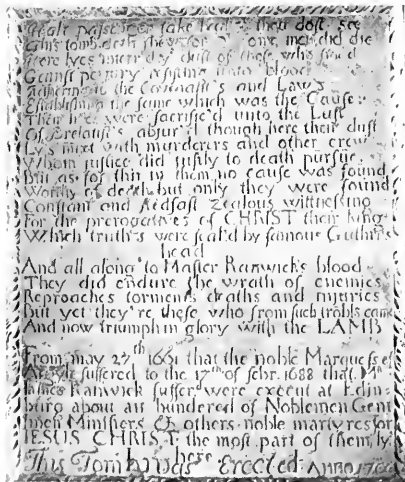 Halt passenger take heed thou dost see
This tomb doth shew for some men did die
Here lyes interr'd dust of these who stood
Gainst perjury resisting unto blood
Adhering to the Covenants and Laws
Establishing the same which was the Cause
Their lives were sacrific'd unto the Lust
Of Prelatist's abjur'd though here their dust
Ly's mixt with murderers and other crew
Whom justice did justly to death pursue
But as for this in them no cause was found
Worthy of death but only they were found
Constant and stedfast Zealous witnessing
For the prerogatives of CHRIST their king
Which truth's were seal'd by famous Guthrie's
head
And all along to Master Ranwick's blood
They did endure the wrath of enemies
Reproaches torments deaths and injuries
But yet they're these who from such trobls came
And now triumph in glory with the LAMB
From may 27th 1661 that the noble Marquess of
Argyle suffered to the 17th of febr. 1688 that Mr
James Ranwick suffer'd were execut at Edin-
burg about an hundered of Noblemen Gent
men Ministers & others noble martyres for
JESUS CHRIST the most part of them ly
here
This Tomb was Erected ANNO